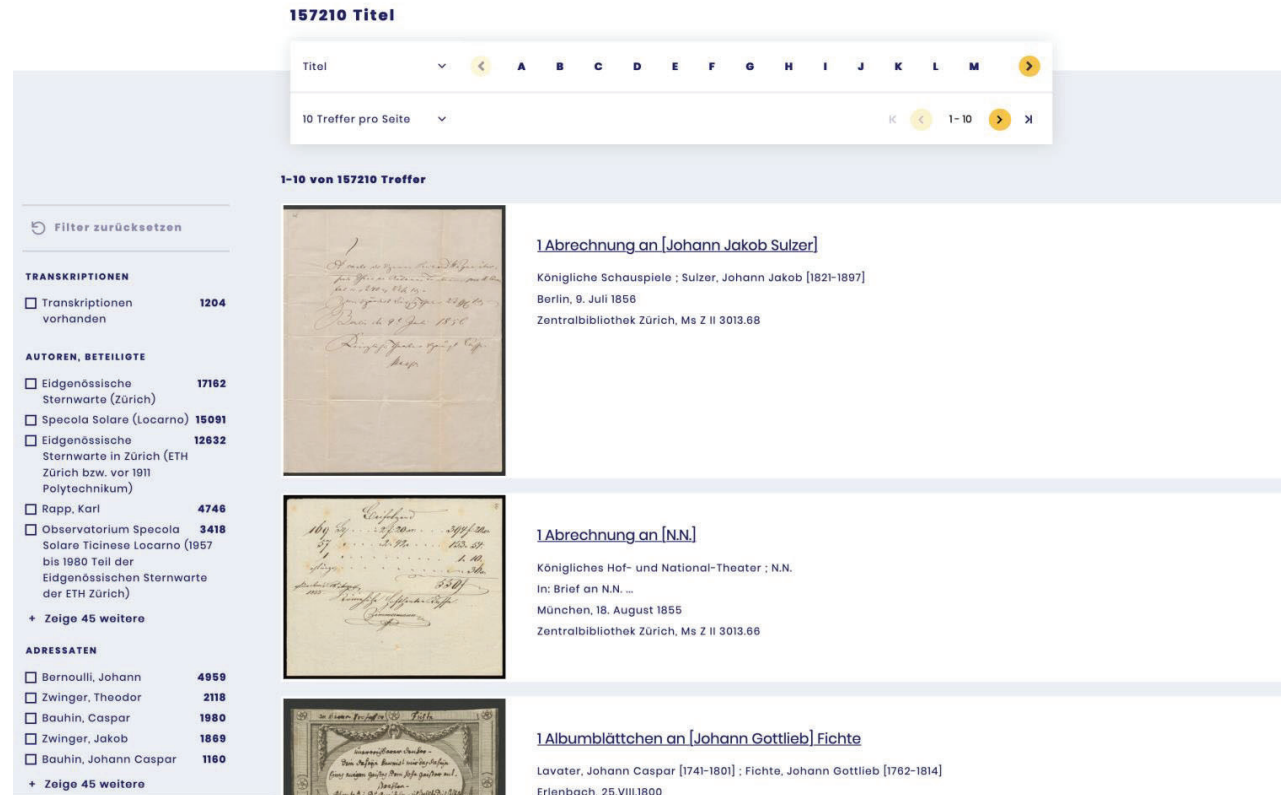 157210 Titel
Titel
A B C D E F G H I J K L M
10 Treffer pro Seite
1-10
1-10 von 157210 Treffer
Filter zurücksetzen
TRANSKRIPTIONEN
Transkriptionen 1204
vorhanden
AUTOREN, BETEILIGTE
Eidgenössische 17162
Sternwarte (Zürich)
Specola Solare (Locarno) 15091
Eidgenössische 12632
Sternwarte in Zürich (ETH
Zürich bzw. vor 1911
Polytechnikum)
Rapp, Karl 4746
Observatorium Specola 3418
Solare Ticinese Locarno (1957
bis 1980 Teil der
Eidgenössischen Sternwarte
der ETH Zürich)
+ Zeige 45 weitere
ADRESSATEN
Bernoulli, Johann 4959
Zwinger, Theodor 2118
Bauhin, Caspar 1980
Zwinger, Jakob 1869
Bauhin, Johann Caspar 1160
+ Zeige 45 weitere
1 Abrechnung an [Johann Jakob Sulzer]
Königliche Schauspiele ; Sulzer, Johann Jakob [1821-1897]
Berlin, 9. Juli 1856
Zentralbibliothek Zürich, Ms Z II 3013.68
1 Abrechnung an [N.N.]
Königliches Hof- und National-Theater ; N.N.
In: Brief an N.N. ...
München, 18. August 1855
Zentralbibliothek Zürich, Ms Z II 3013.66
1 Albumblättchen an [Johann Gottlieb] Fichte
Lavater, Johann Caspar [1741-1801] ; Fichte, Johann Gottlieb [1762-1814]
Erlenbach, 25.VIII.1800